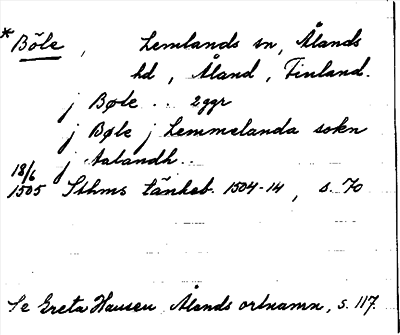 * Böle , Lemlands sn, Ålands
hd , Åland , Finland.
j Bøle . . 2 ggr
j Bøle j Lemmelanda sokn
j Aalandh . .
18/6
1505 Sthms tänkeb. 1504-14 , s. 70
Se Greta Hausen, Ålands ortnamn, s. 117.